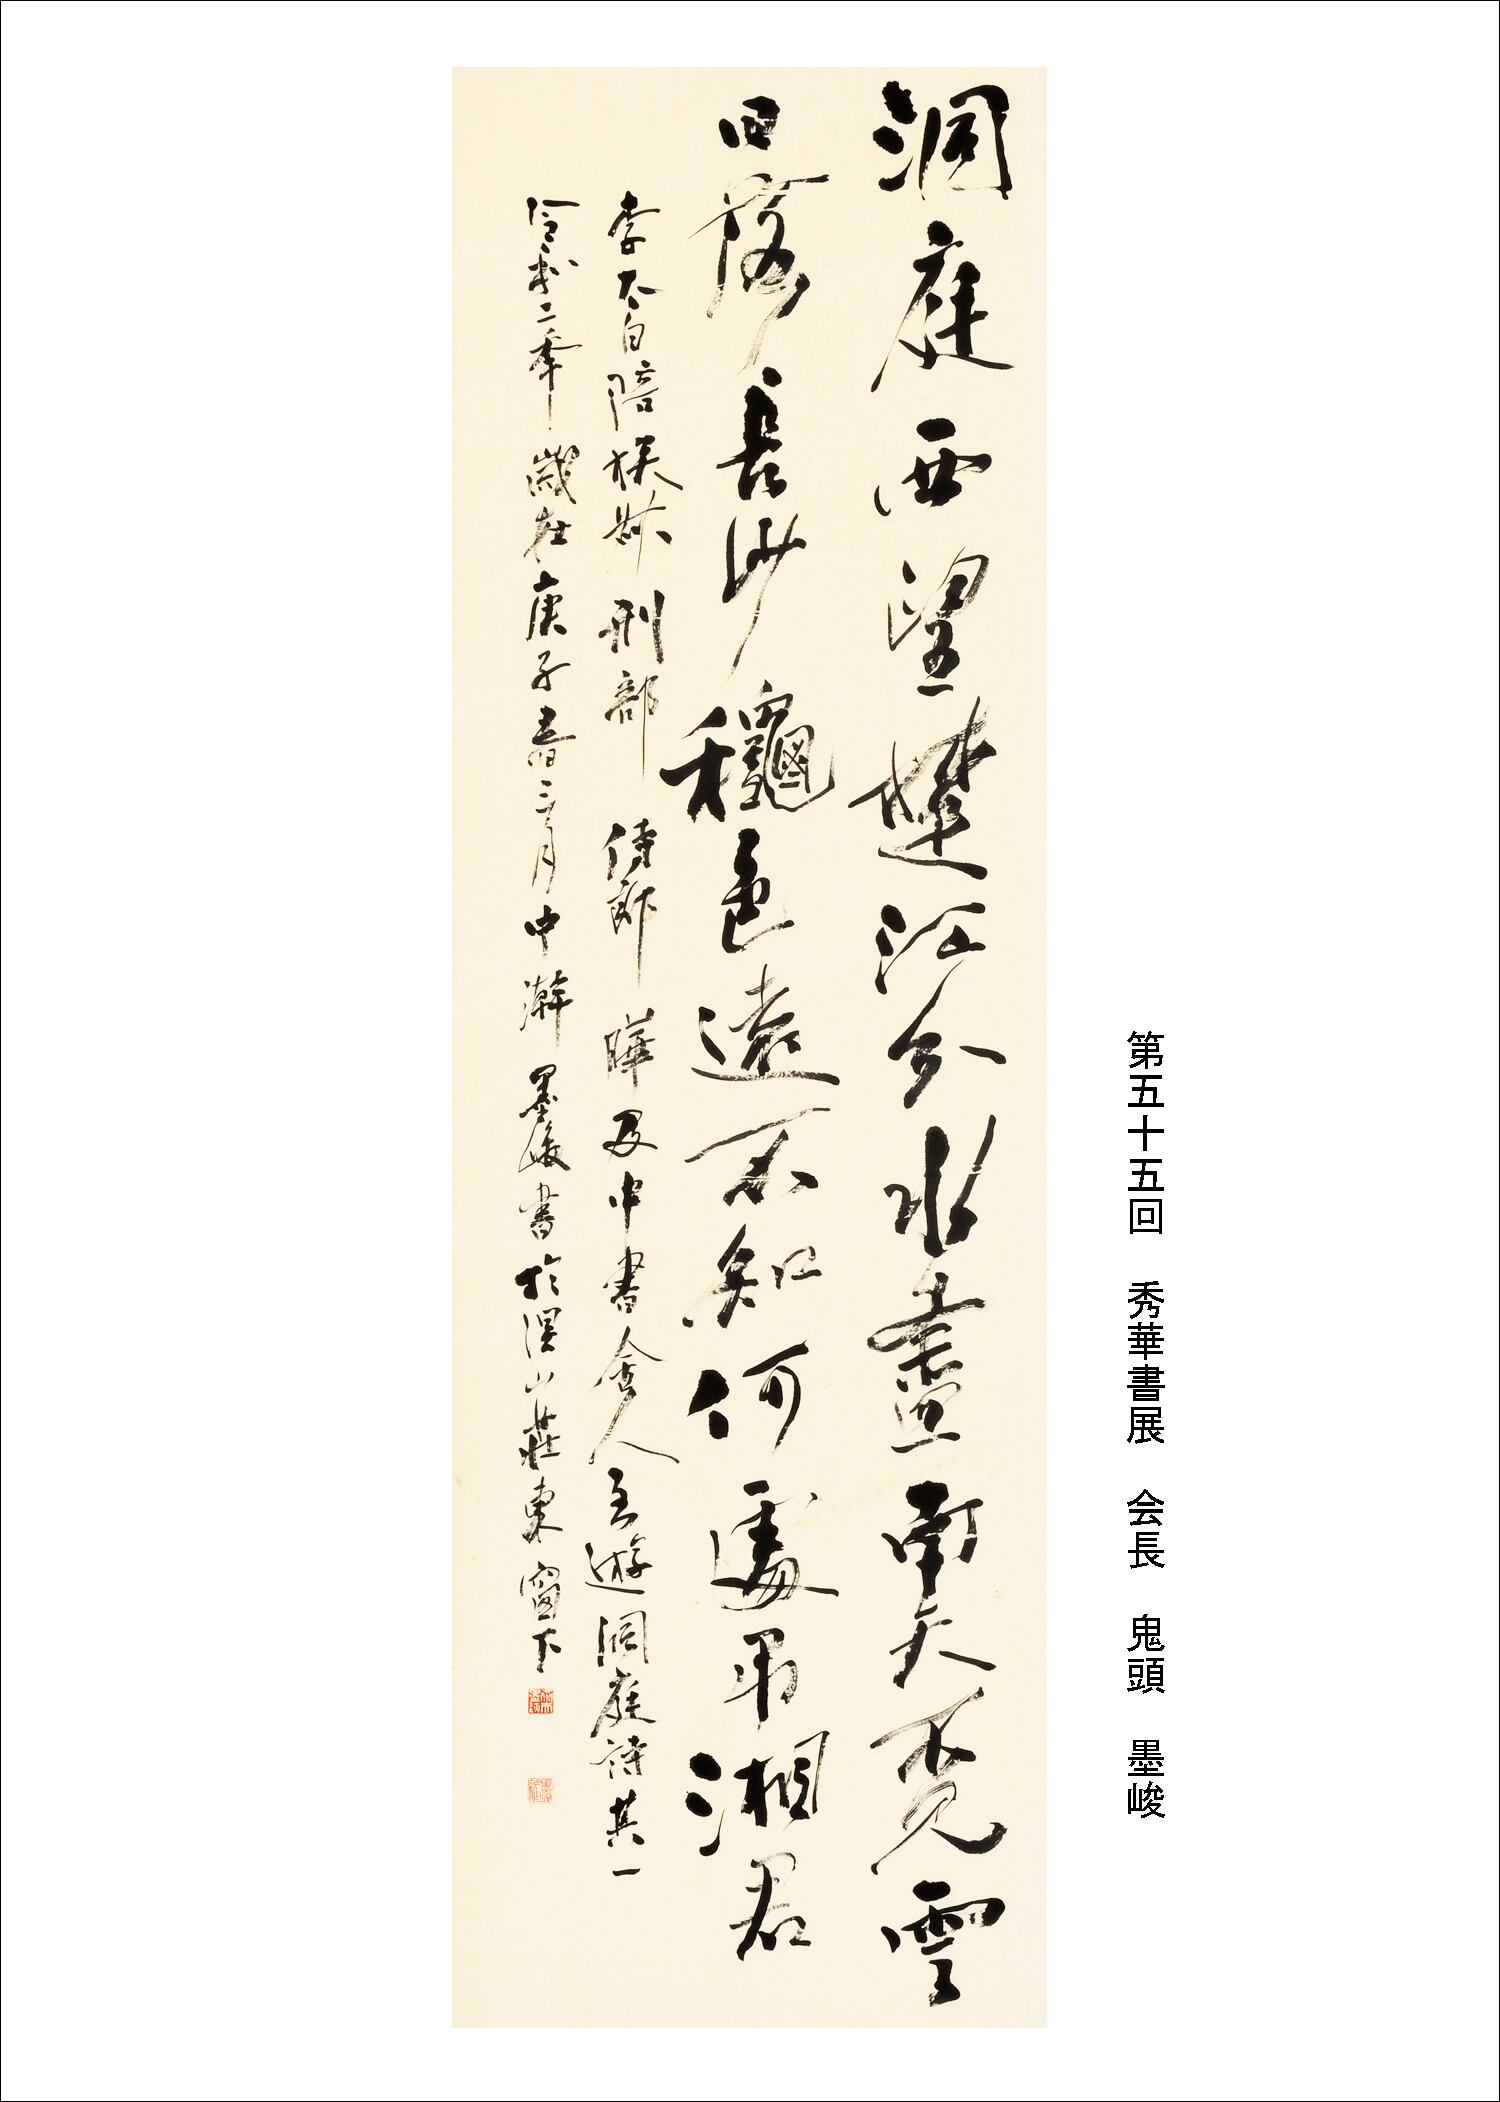 第五十五回　秀華書展　会長　鬼頭　墨峻
洞庭西望楚江分水盡南天不見雲
日落長沙龝色遠不知何處弔湘君
李太白陪族叔刑部侍郎曄及中書舍人至遊洞庭詩其一
令和二年歲在庚子春三月中澣墨峻書於山莊東窗下